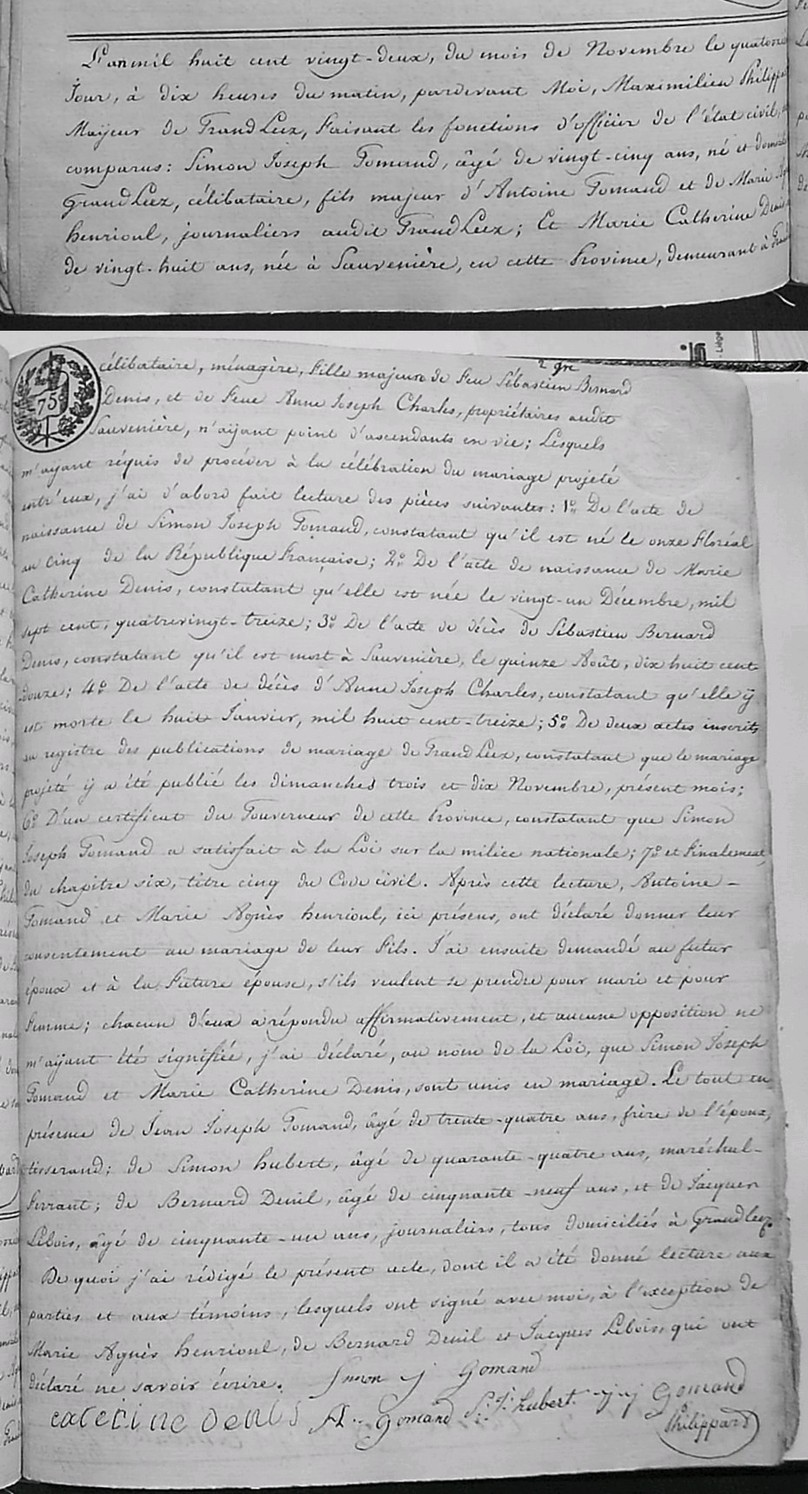 L'an mil huit cent vingt-deux, du mois de Novembre le quatorze
Jour, à dix heures du matin, pardevant Moi, Maximilien Philippa
Maÿeur de Grand Leez, faisant les fonctions d'officier de l'état civil,
comparus: Simon Joseph Gomand, âgé de vingt-cinq ans, né et domi
Grand Leez, célibataire, fils majeur d'Antoine Gomand et de Marie
henrioul, journaliers audit Grand Leez; Et Marie Catherine Denis
de vingt-huit ans, née à Sauvenière, en cette Province, demeurant à
75
2 gre
célibataire, ménagère, fille majeure de feu Sébastien Bernard
Denis, et de feue Anne Joseph Charles, propriétaires audit
Sauvenière, n'aÿant point d'ascendants en vie; Lesquels
m'ayant réquis de procéder à la célébration du mariage projeté
entr'eux, j'ai d'abord fait lecture des pièces suivantes: 1º De l'acte de
naissance de Simon Joseph Gomand, constatant qu'il est né le onze floréal
an cinq de la République française; 2º De l'acte de naissance de Marie
Catherine Denis, constatant qu'elle est née le vingt-un Décembre, mil
sept cent, quatrevingt-treize; 3º De l'acte de décès de Sébastien Bernard
Denis, constatant qu'il est mort à Sauvenière, le quinze Août, dix huit cent
douze; 4º De l'acte de décès d'Anne Joseph Charles, constatant qu'elle ÿ
est morte le huit Janvier, mil huit cent-treize; 5º De deux actes inscrits
au registre des publications de mariage de Grand Leez, constatant que le mariage
projeté ÿ a été publié les dimanches trois et dix Novembre, présent mois;
6º D'un certificat du Gouverneur de cette Province, constatant que Simon
Joseph Gomand a satisfait à la Loi sur la milice nationale; 7º et finalement,
du chapitre six, titre cinq du Code civil. Après cette lecture, Antoine
Gomand et Marie Agnès henrioul, ici présens, ont déclaré donner leur
consentement au mariage de leur fils. J'ai ensuite demandé au futur
époux et à la future épouse, s'ils veulent se prendre pour mari et pour
femme; chacun d'eux a répondu affirmativement, et aucune opposition ne
m'aÿant été signifiée, j'ai déclaré, au nom de la Loi, que Simon Joseph
Gomand et Marie Catherine Denis, sont unis en mariage. Le tout en
présence de Jean Joseph Gomand, âgé de trente-quatre ans, frère de l'époux,
tisserand; de Simon hubert, âgé de quarante-quatre ans, maréchal-
ferrant; de Bernard Denil, âgé de cinquante-neuf ans, et de Jacques
Lebois, âgé de cinquante-un ans, journaliers, tous domiciliés à Grandleez.
De quoi j'ai rédigé le présent acte, dont il a été donné lecture aux
parties et aux témoins, lesquels ont signé avec moi, à l'exception de
Marie Agnès henrioul, de Bernard Denil et Jacques Lebois, qui ont
déclaré ne savoir écrire. Simon j Gomand
caterine denis A. gomand S. J. hubert j j Gomand
Philippart